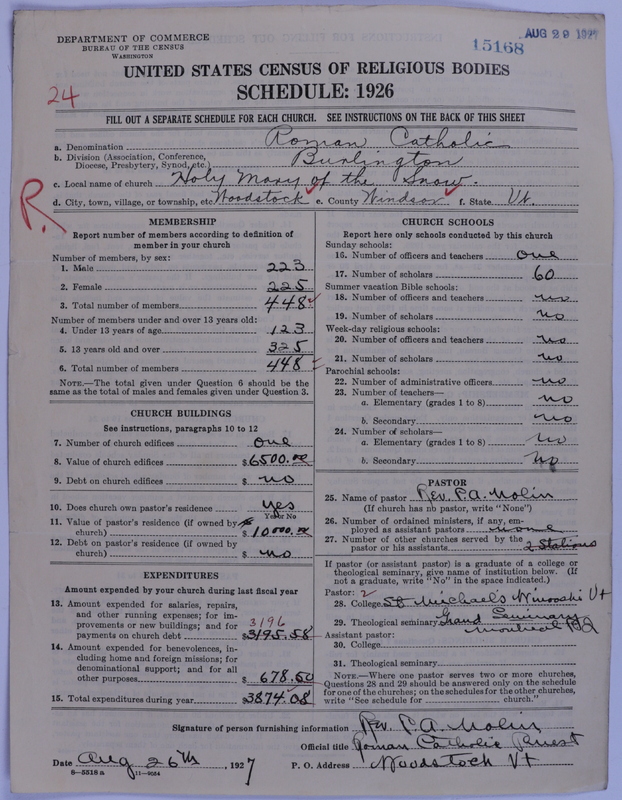 DEPARTMENT OF COMMERCE
BUREAU OF THE CENSUS
WASHINGTON
15168
AUG 29 1927
UNITED STATES CENSUS OF RELIGIOUS BODIES
SCHEDULE: 1926
24
FILL OUT A SEPARATE SCHEDULE FOR EACH CHURCH. SEE INSTRUCTIONS ON THE BACK OF THIS SHEET
a. Denomination Roman Catholic
b. Division (Association, Conference, Diocese, Presbytery, Synod, etc.) Burlington
c. Local name of church Holy Mary of the Snow.
d. City, town, village, or township, etc Woodstock e. County Windsor f. State Vt.
R.
MEMBERSHIP
Report number of members according to definition of
member in your church
Number of members, by sex:
1. Male 223
2. Female 225
3. Total number of members 448
Number of members under and over 13 years old:
4. Under 13 years of age 123
5. 13 years old and over 325
6. Total number of members 448
NOTE.—The total given under Question 6 should be
same as the total of males and females given under Question 3.
CHURCH BUILDINGS
See instructions, paragraphs 10 to 12
7. Number of church edifices one
8. Value of church edifices $6500.00
9. Debt on church edifices $ no
10. Does church own pastor's residence yes
Yes or No
11. Value of pastor's residence (if owned by
church) $10000.00
12. Debt on pastor's residence (if owned by
church) $ no
EXPENDITURES
Amount expended by your church during last fiscal year
13. Amount expended for salaries, repairs,
and other running expenses; for im-
provements or new buildings; and for 3196
payments on church debt $3195.58
14. Amount expended for benevolences, in-
cluding home and foreign missions; for
denominational support; and for all
other purposes $ 678.50
15. Total expenditures during year $3874.08
CHURCH SCHOOLS
Report here only schools conducted by this church
Sunday schools:
16. Number of officers and teachers one
17. Number of scholars 60
Summer vacation Bible schools:
18. Number of officers and teachers no
19. Number of scholars no
Week-day religious schools:
20. Number of officers and teachers no
21. Number of scholars no
Parochial schools:
22. Number of administrative officers no
23. Number of teachers—
a. Elementary (grades 1 to 8) no
b. Secondary no
24. Number of scholars—
a. Elementary (grades 1 to 8) no
b. Secondary no
PASTOR
25. Name of pastor Rev. P. A. Nolin
(If church has no pastor, write "None")
26. Number of ordained ministers, if any, em-
ployed as assistant pastors none
27. Number of other churches served by the
pastor or his assistants 2 Stations
If pastor (or assistant pastor) is a graduate of a college or
theological seminary, give name of institution below. (If
not a graduate, write "No" in the space indicated.)
Pastor: 2
28. College St Michael's Winooski Vt
29. Theological seminary Grand Seminary
Montreal PQ
Assistant pastor:
30. College
31. Theological seminary
NOTE.—Where one pastor serves two or more churches,
Questions 28 and 29 should be answered only on the schedule
for one of the churches; on the schedules for the other churches,
write "See schedule for church."
Signature of person furnishing information Rev. P. A. Nolin
Official title Roman Catholic Priest
Date Aug 26th, 1927 P. O. Address Woodstock Vt
8—5518 a 11—9054